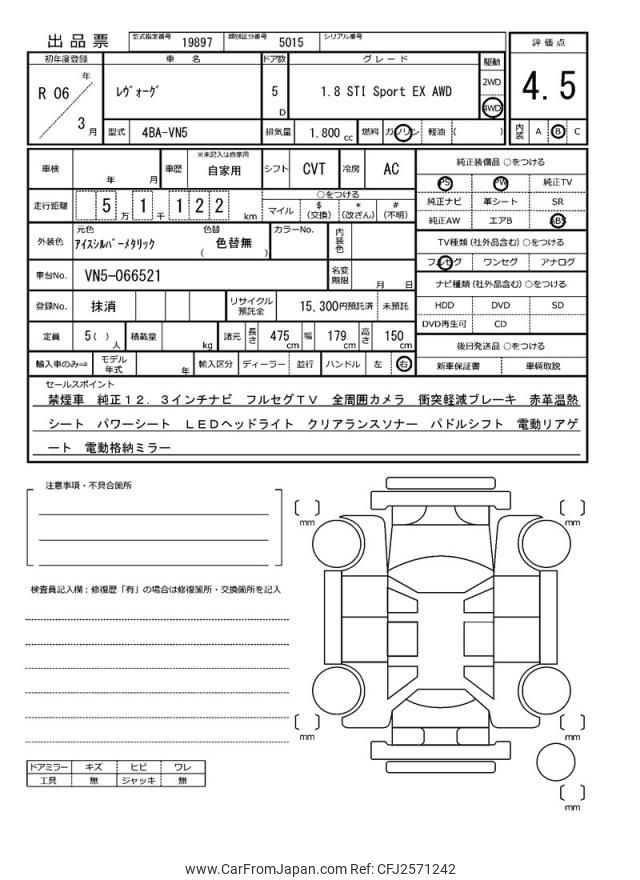 出品票 型式指定番号 19897 類別区分番号 5015 シリアル番号
初年度登録 車 名 ドア数 グレード 駆動 評価点
R 06 年 3 月 ﾚｳﾞｫｰｸﾞ 5 D 1.8 STI Sport EX AWD 2WD 4WD 4.5
型式 4BA-VN5 排気量 1,800 cc 燃料 ガソリン 軽油 ( ) 内装 A B C
車検 年 月 車歴 ※未記入は自家用 自家用 シフト CVT 冷房 AC
走行距離 5 万 1 千 1 2 2 km ○をつける
マイル $ (交換) * (改ざん) # (不明)
外装色 元色 ｱｲｽｼﾙﾊﾞｰﾒﾀﾘｯｸ 色替 ( 色替無 ) カラーNo. 内装色
車台No. VN5-066521 名変期限 月 日
登録No. 抹消 リサイクル預託金 15,300円預託済 未預託
定員 5( ) 人 積載量 kg 諸元 長さ 475 cm 幅 179 cm 高さ 150 cm
輸入車のみ⇒ モデル年式 年 輸入区分 ディーラー 並行 ハンドル 左 右
純正装備品 ○をつける
PS PW 純正TV
純正ナビ 革シート SR
純正AW エアB ABS
TV種類 (社外品含む) ○をつける
フルセグ ワンセグ アナログ
ナビ種類 (社外品含む) ○をつける
HDD DVD SD
DVD再生可 CD
後日発送品 ○をつける
新車保証書 車輌取説
セールスポイント
禁煙車 純正12.3インチナビ フルセグTV 全周囲カメラ 衝突軽減ブレーキ 赤革温熱
シート パワーシート LEDヘッドライト クリアランスソナー パドルシフト 電動リアゲ
ート 電動格納ミラー
注意事項・不具合箇所
検査員記入欄：修復歴「有」の場合は修復箇所・交換箇所を記入
ドアミラー キズ ヒビ ワレ
工具 無 ジャッキ 無
mm
mm
mm
mm
mm
www.CarFromJapan.com Ref: CFJ2571242